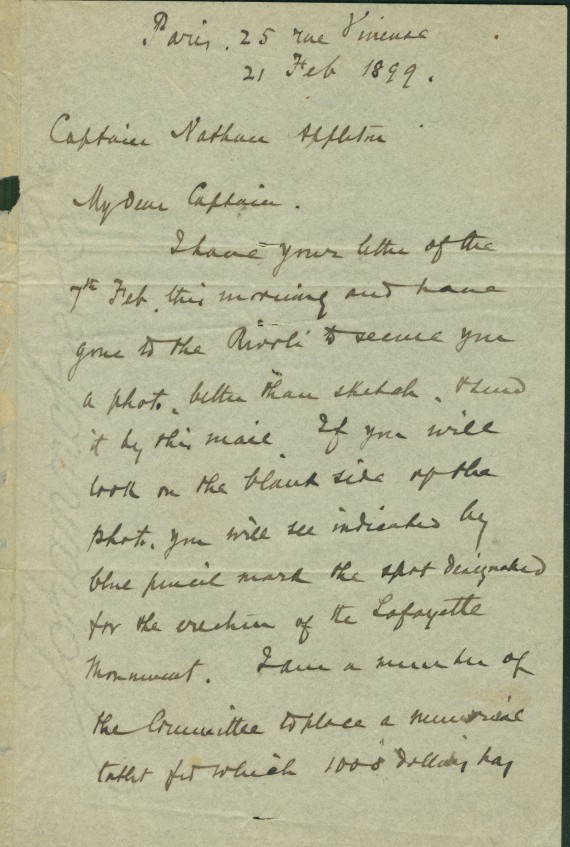 Paris, 25 rue Vineuse
21 Feb 1899.
Captain Nathan Appleton
My dear Captain.
I have your letter of the
7th Feb. this morning and have
gone to the Rivoli to secure you
a photo, better than sketch, & send
it by this mail. If you will
look on the blank side of the
photo. you will see indicated by
blue pencil mark the spot designated
for the erection of the Lafayette
Monument. I am a member of
the Committee to place a memorial
tablet for which 1000 dollars has